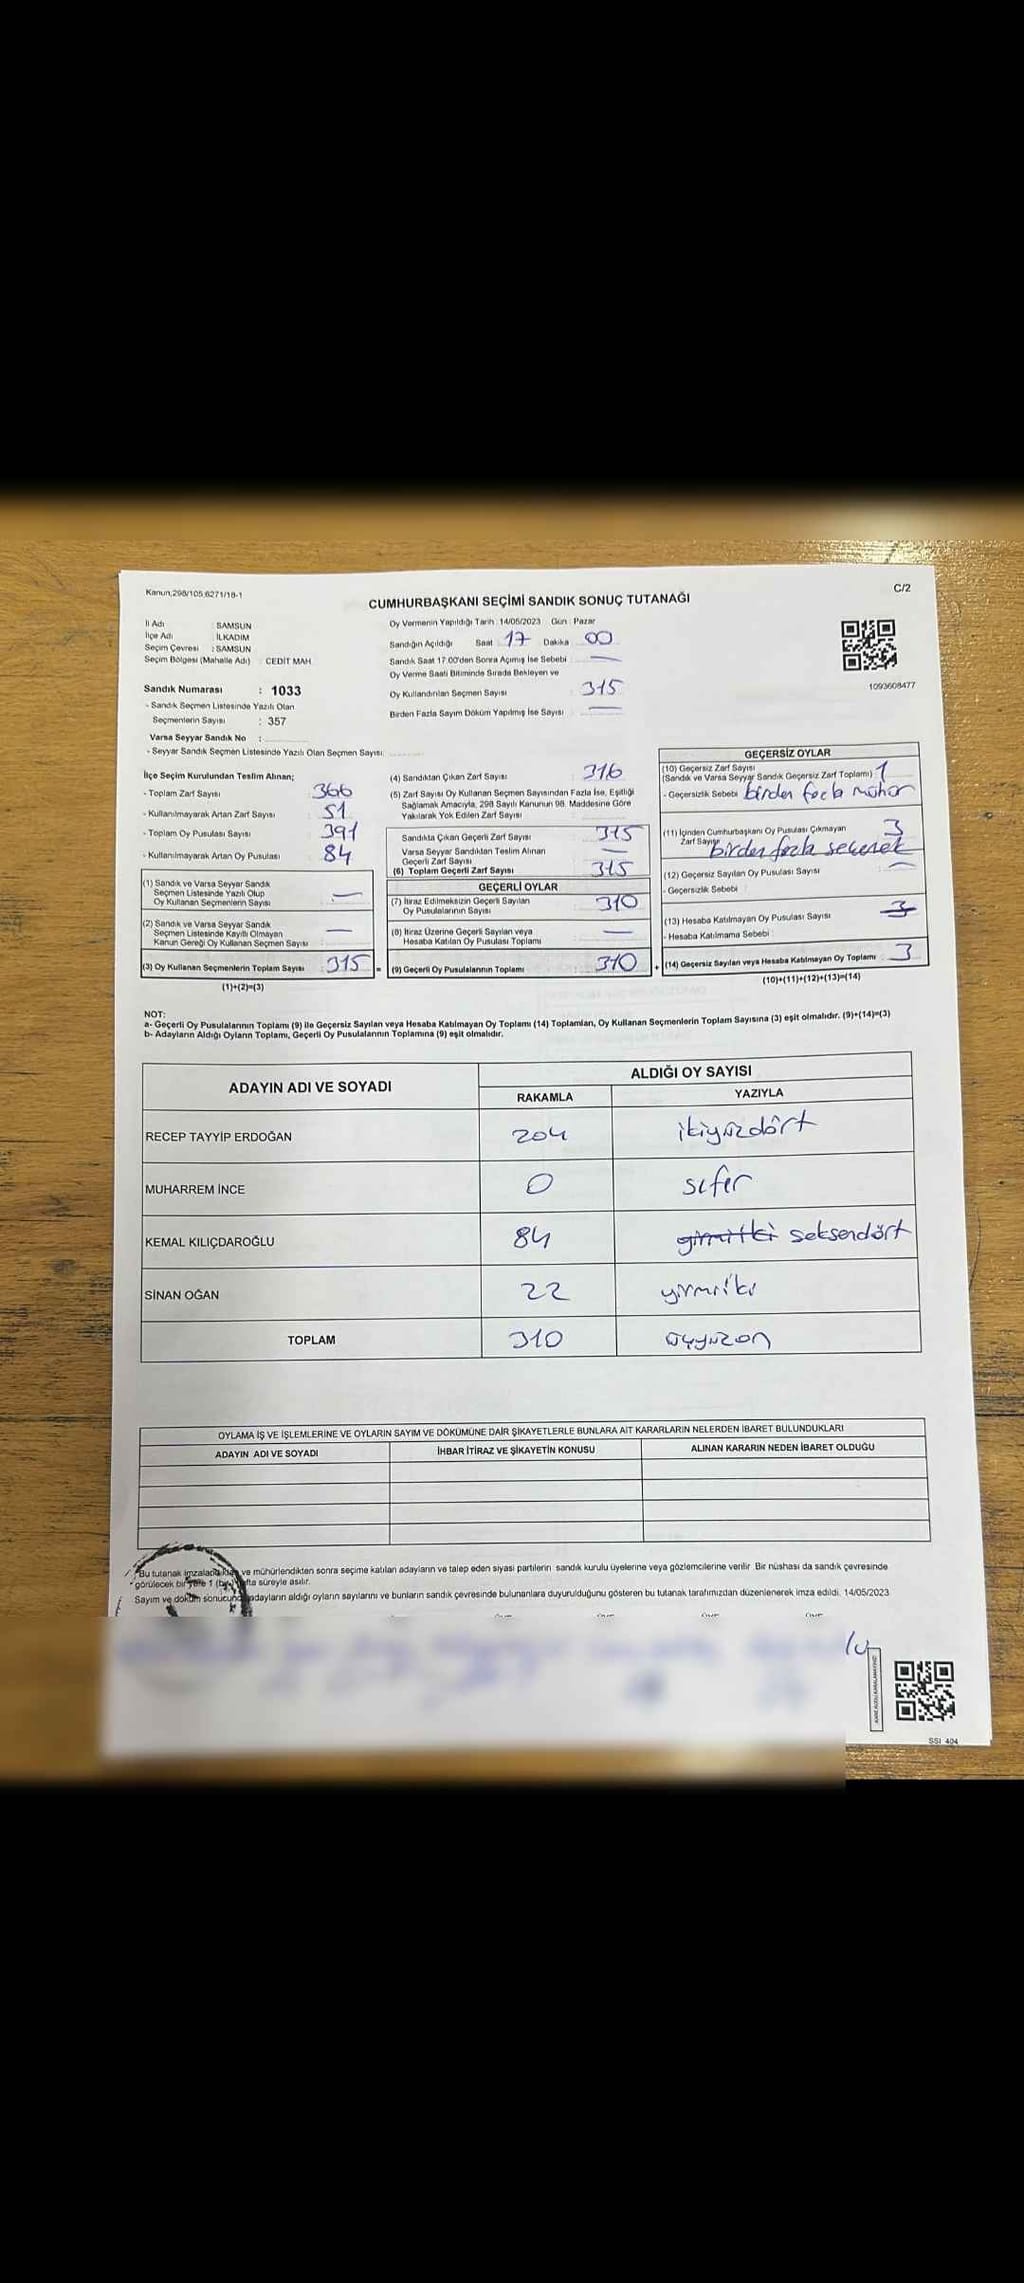 Kanun,298/105,6271/18-1
C/2
CUMHURBAŞKANI SEÇİMİ SANDIK SONUÇ TUTANAĞI
İl Adı : SAMSUN
İlçe Adı : İLKADIM
Seçim Çevresi : SAMSUN
Seçim Bölgesi (Mahalle Adı) : CEDİT MAH.
Sandık Numarası : 1033
- Sandık Seçmen Listesinde Yazılı Olan
Seçmenlerin Sayısı : 357
Varsa Seyyar Sandık No :
- Seyyar Sandık Seçmen Listesinde Yazılı Olan Seçmen Sayısı:
Oy Vermenin Yapıldığı Tarih : 14/05/2023 Gün : Pazar
Sandığın Açıldığı Saat 17 Dakika 00
Sandık Saat 17.00'den Sonra Açımış İse Sebebi : —
Oy Verme Saati Bitiminde Sırada Bekleyen ve
Oy Kullandırılan Seçmen Sayısı : 315
Birden Fazla Sayım Döküm Yapılmış İse Sayısı : —
1093608477
İlçe Seçim Kurulundan Teslim Alınan;
- Toplam Zarf Sayısı : 366
- Kullanılmayarak Artan Zarf Sayısı : 51
- Toplam Oy Pusulası Sayısı : 391
- Kullanılmayarak Artan Oy Pusulası : 84
(1) Sandık ve Varsa Seyyar Sandık
Seçmen Listesinde Yazılı Olup
Oy Kullanan Seçmenlerin Sayısı : —
(2) Sandık ve Varsa Seyyar Sandık
Seçmen Listesinde Kayıtlı Olmayan
Kanun Gereği Oy Kullanan Seçmen Sayısı : —
(3) Oy Kullanan Seçmenlerin Toplam Sayısı : 315 =
(1)+(2)=(3)
(4) Sandıktan Çıkan Zarf Sayısı : 316
(5) Zarf Sayısı Oy Kullanan Seçmen Sayısından Fazla İse, Eşitliği
Sağlamak Amacıyla, 298 Sayılı Kanunun 98. Maddesine Göre
Yakılarak Yok Edilen Zarf Sayısı :
Sandıkta Çıkan Geçerli Zarf Sayısı : 315
Varsa Seyyar Sandıktan Teslim Alınan
Geçerli Zarf Sayısı : —
(6) Toplam Geçerli Zarf Sayısı : 315
GEÇERLİ OYLAR
(7) İtiraz Edilmeksizin Geçerli Sayılan
Oy Pusulalarının Sayısı : 310
(8) İtiraz Üzerine Geçerli Sayılan veya
Hesaba Katılan Oy Pusulası Toplamı : —
(9) Geçerli Oy Pusulalarının Toplamı : 310 +
GEÇERSİZ OYLAR
(10) Geçersiz Zarf Sayısı
(Sandık ve Varsa Seyyar Sandık Geçersiz Zarf Toplamı) : 1
- Geçersizlik Sebebi : birden fazla mühür
(11) İçinden Cumhurbaşkanı Oy Pusulası Çıkmayan
Zarf Sayısı : 3
birden fazla seçenek
(12) Geçersiz Sayılan Oy Pusulası Sayısı : —
- Geçersizlik Sebebi :
(13) Hesaba Katılmayan Oy Pusulası Sayısı : 3
- Hesaba Katılmama Sebebi :
(14) Geçersiz Sayılan veya Hesaba Katılmayan Oy Toplamı : 3
(10)+(11)+(12)+(13)=(14)
NOT:
a- Geçerli Oy Pusulalarının Toplamı (9) ile Geçersiz Sayılan veya Hesaba Katılmayan Oy Toplamı (14) Toplamları, Oy Kullanan Seçmenlerin Toplam Sayısına (3) eşit olmalıdır. (9)+(14)=(3)
b- Adayların Aldığı Oyların Toplamı, Geçerli Oy Pusulalarının Toplamına (9) eşit olmalıdır.
ADAYIN ADI VE SOYADI ALDIĞI OY SAYISI
RAKAMLA YAZIYLA
RECEP TAYYİP ERDOĞAN 204 ikiyüzdört
MUHARREM İNCE 0 sıfır
KEMAL KILIÇDAROĞLU 84 seksendört
SİNAN OĞAN 22 yirmiiki
TOPLAM 310 üçyüzon
OYLAMA İŞ VE İŞLEMLERİNE VE OYLARIN SAYIM VE DÖKÜMÜNE DAİR ŞİKAYETLERLE BUNLARA AİT KARARLARIN NELERDEN İBARET BULUNDUKLARI
ADAYIN ADI VE SOYADI İHBAR İTİRAZ VE ŞİKAYETİN KONUSU ALINAN KARARIN NEDEN İBARET OLDUĞU
Bu tutanak ve mühürlendikten sonra seçime katılan adayların ve talep eden siyasi partilerin sandık kurulu üyelerine veya gözlemcilerine verilir. Bir nüshası da sandık çevresinde
görülecek bir yere 1 süreyle asılır.
Sayım ve döküm sonucunda adayların aldığı oyların sayılarını ve bunların sandık çevresinde bulunanlara duyurulduğunu gösteren bu tutanak tarafımızdan düzenlenerek imza edildi. 14/05/2023
SSI 404